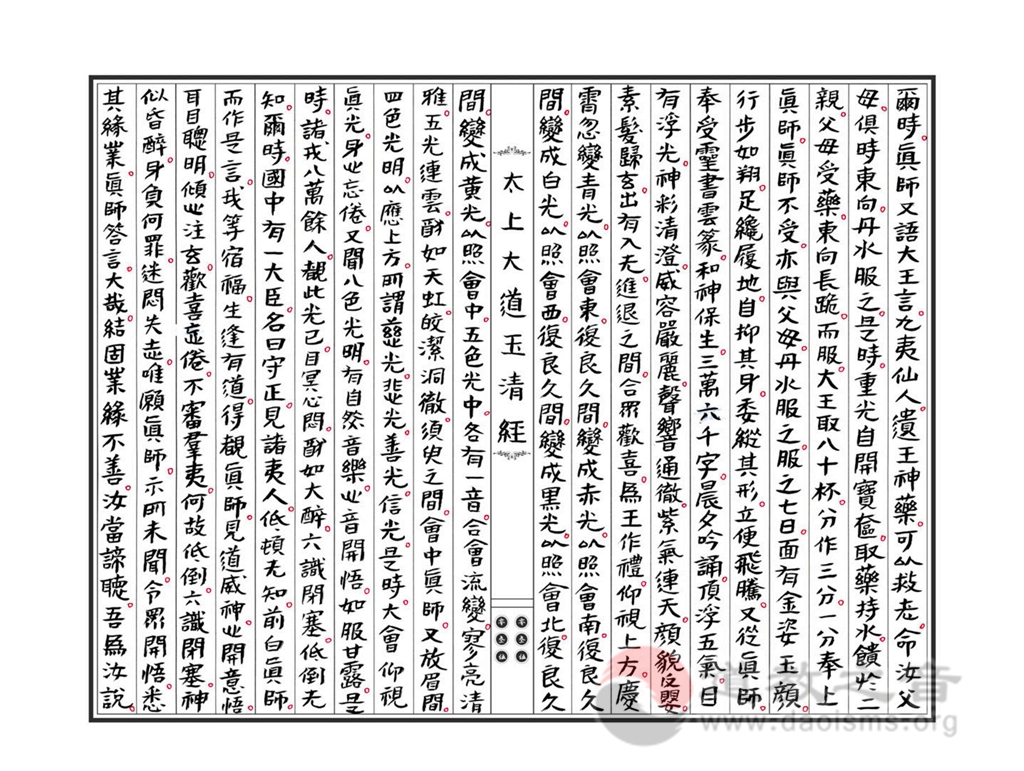 爾時眞師又語大王言九夷仙人遺王神藥可以救老命汝父
母俱時東向丹水服之是時重光自開寶奩取藥持水饋此二
親父母受藥東向長跪而服大王取八十杯分作三分一分奉上
眞師眞師不受亦與父母丹水服之服之七日面有金姿玉顔
行步如翔足纔履地自抑其身委縱其形立便飛騰又從眞師
奉受靈書雲篆和神保生三萬六千字晨夕吟誦頂浮五氣目
有浮光神彩清澄威容嚴麗聲響通徹紫氣連天顔貌反嬰
素髮歸玄出有入无進退之間合眾歡喜爲王作禮仰視上方慶
霄忽變青光以照會東復良久間變成赤光以照會南復良久
間變成白光以照會西復良久間變成黑光以照會北復良久
太上大道玉清經
間變成黄光以照會中五色光中各有一音合會流變寥亮清
雅五光連雲酧如天虹皎潔洞徹須臾之間會中眞師又放眉間
四色光明以應上方所謂慈光悲光善光信光是時大會仰視
眞光身心忘倦又聞八色光明有自然音樂之音開悟如服甘露是
時諸戎八萬餘人覩此光已目冥心悶酧如大醉六識閉塞低倒无
知爾時國中有一大臣名曰守正見諸夷人低頓无知前白眞師
而作是言我等宿福生逢有道得覩眞師見道威神心開意悟
耳目聰明傾心注玄歡喜忘倦不審羣夷何故低倒六識閉塞神
似昏醉身負何罪迷悶失志唯願眞師示所未聞令眾開悟悉
其緣業眞師答言大哉結固業緣不善汝當諦聽吾爲汝說
道教之音
www.daoisms.org